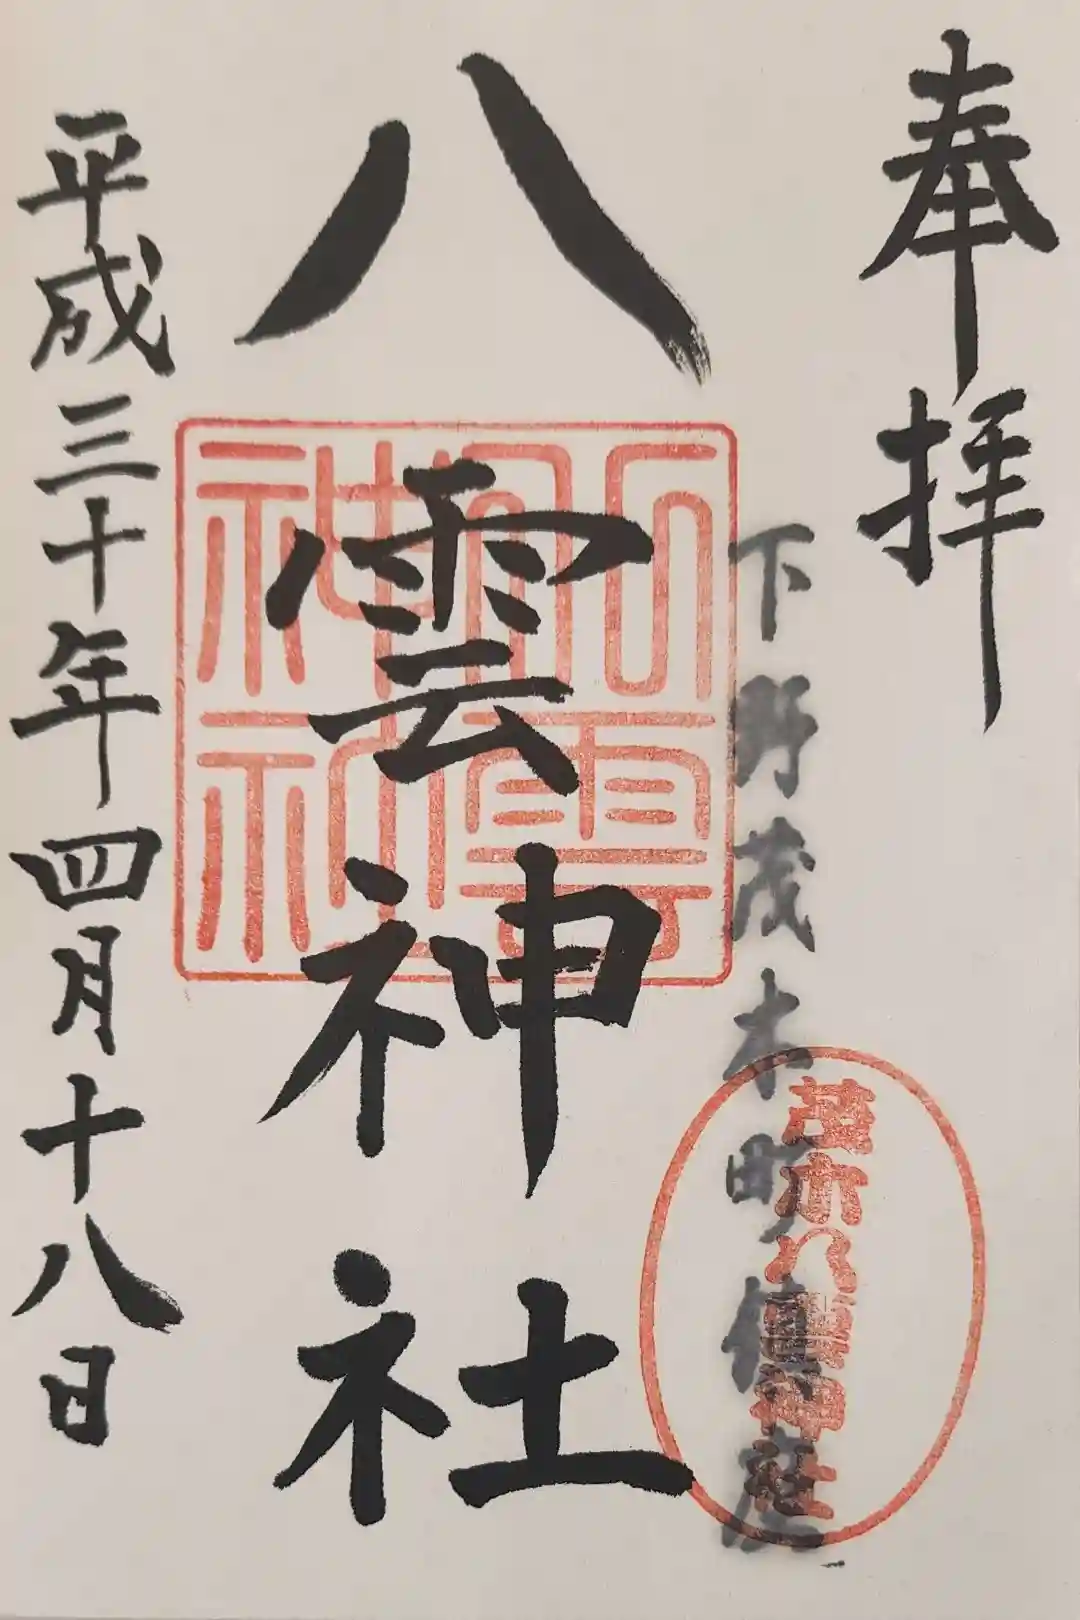 奉拝
下野茂木町鎮座
茂木八雲神社
八雲神社
八雲神社
平成三十年四月十八日